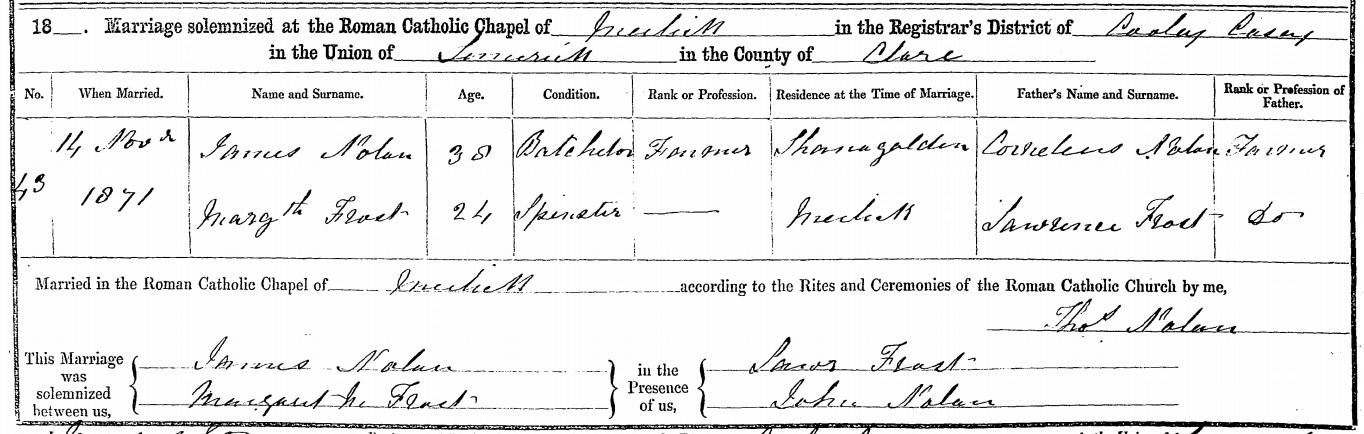 18___. Marriage solemnized at the Roman Catholic Chapel of Meelick in the Registrar's District of Cooley Casey
in the Union of Limerick in the County of Clare
No. When Married. Name and Surname. Age. Condition. Rank or Profession. Residence at the Time of Marriage. Father's Name and Surname. Rank or Profession of Father.
14 Novr James Nolan 38 Batchelor Farmer Shanagolden Cornelius Nolan Farmer
43 1871 Margth Frost 24 Spinster — Meelick Lawrence Frost Do
Married in the Roman Catholic Chapel of Meelick according to the Rites and Ceremonies of the Roman Catholic Church by me,
Thos Nolan
This Marriage was solemnized between us, James Nolan in the Presence of us, Lawr Frost
Margaret M Frost John Nolan